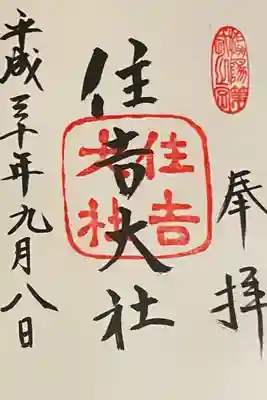 奉拝
住吉大社
住吉
大社
平成三十年九月八日